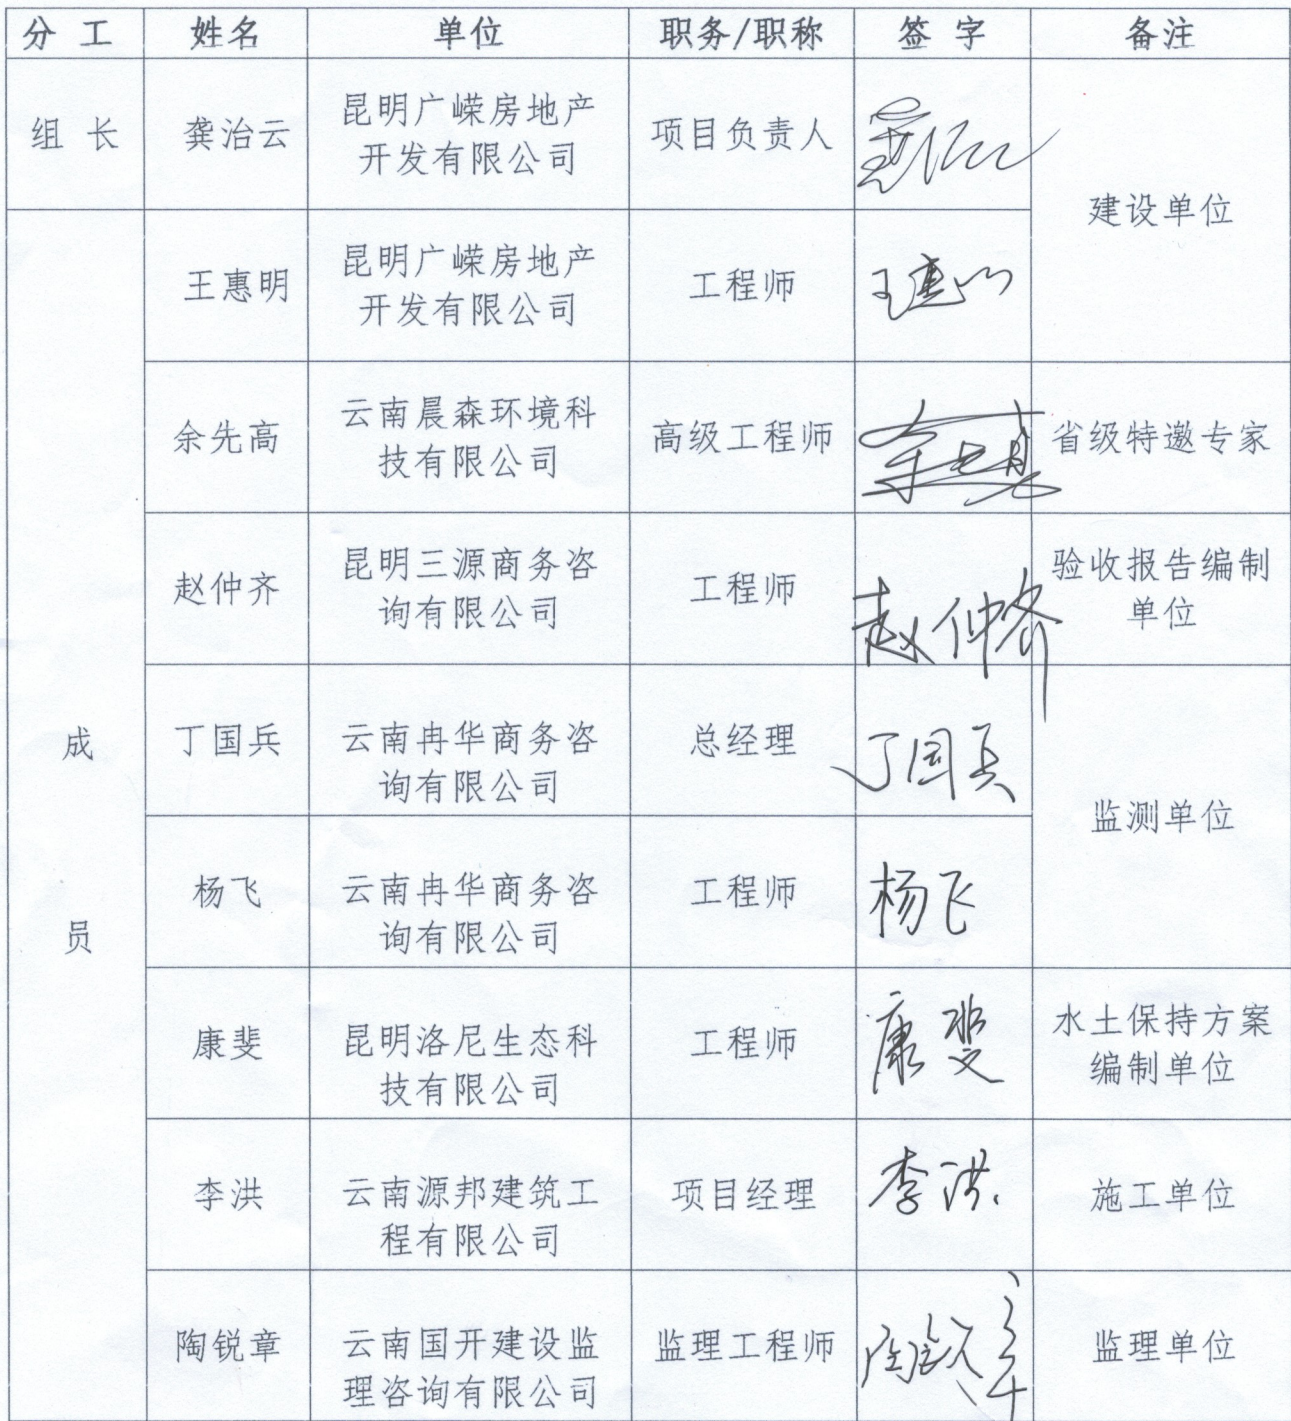 分 工 姓名 单位 职务/职称 签 字 备注
组 长 龚治云 昆明广嵘房地产
开发有限公司 项目负责人 龚治云 建设单位
成
员
王惠明 昆明广嵘房地产
开发有限公司 工程师 王惠明
余先高 云南晨森环境科
技有限公司 高级工程师 余先高 省级特邀专家
赵仲齐 昆明三源商务咨
询有限公司 工程师 赵仲齐 验收报告编制
单位
丁国兵 云南冉华商务咨
询有限公司 总经理 丁国兵 监测单位
杨飞 云南冉华商务咨
询有限公司 工程师 杨飞
康斐 昆明洛尼生态科
技有限公司 工程师 康斐 水土保持方案
编制单位
李洪 云南源邦建筑工
程有限公司 项目经理 李洪 施工单位
陶锐章 云南国开建设监
理咨询有限公司 监理工程师 陶锐章 监理单位